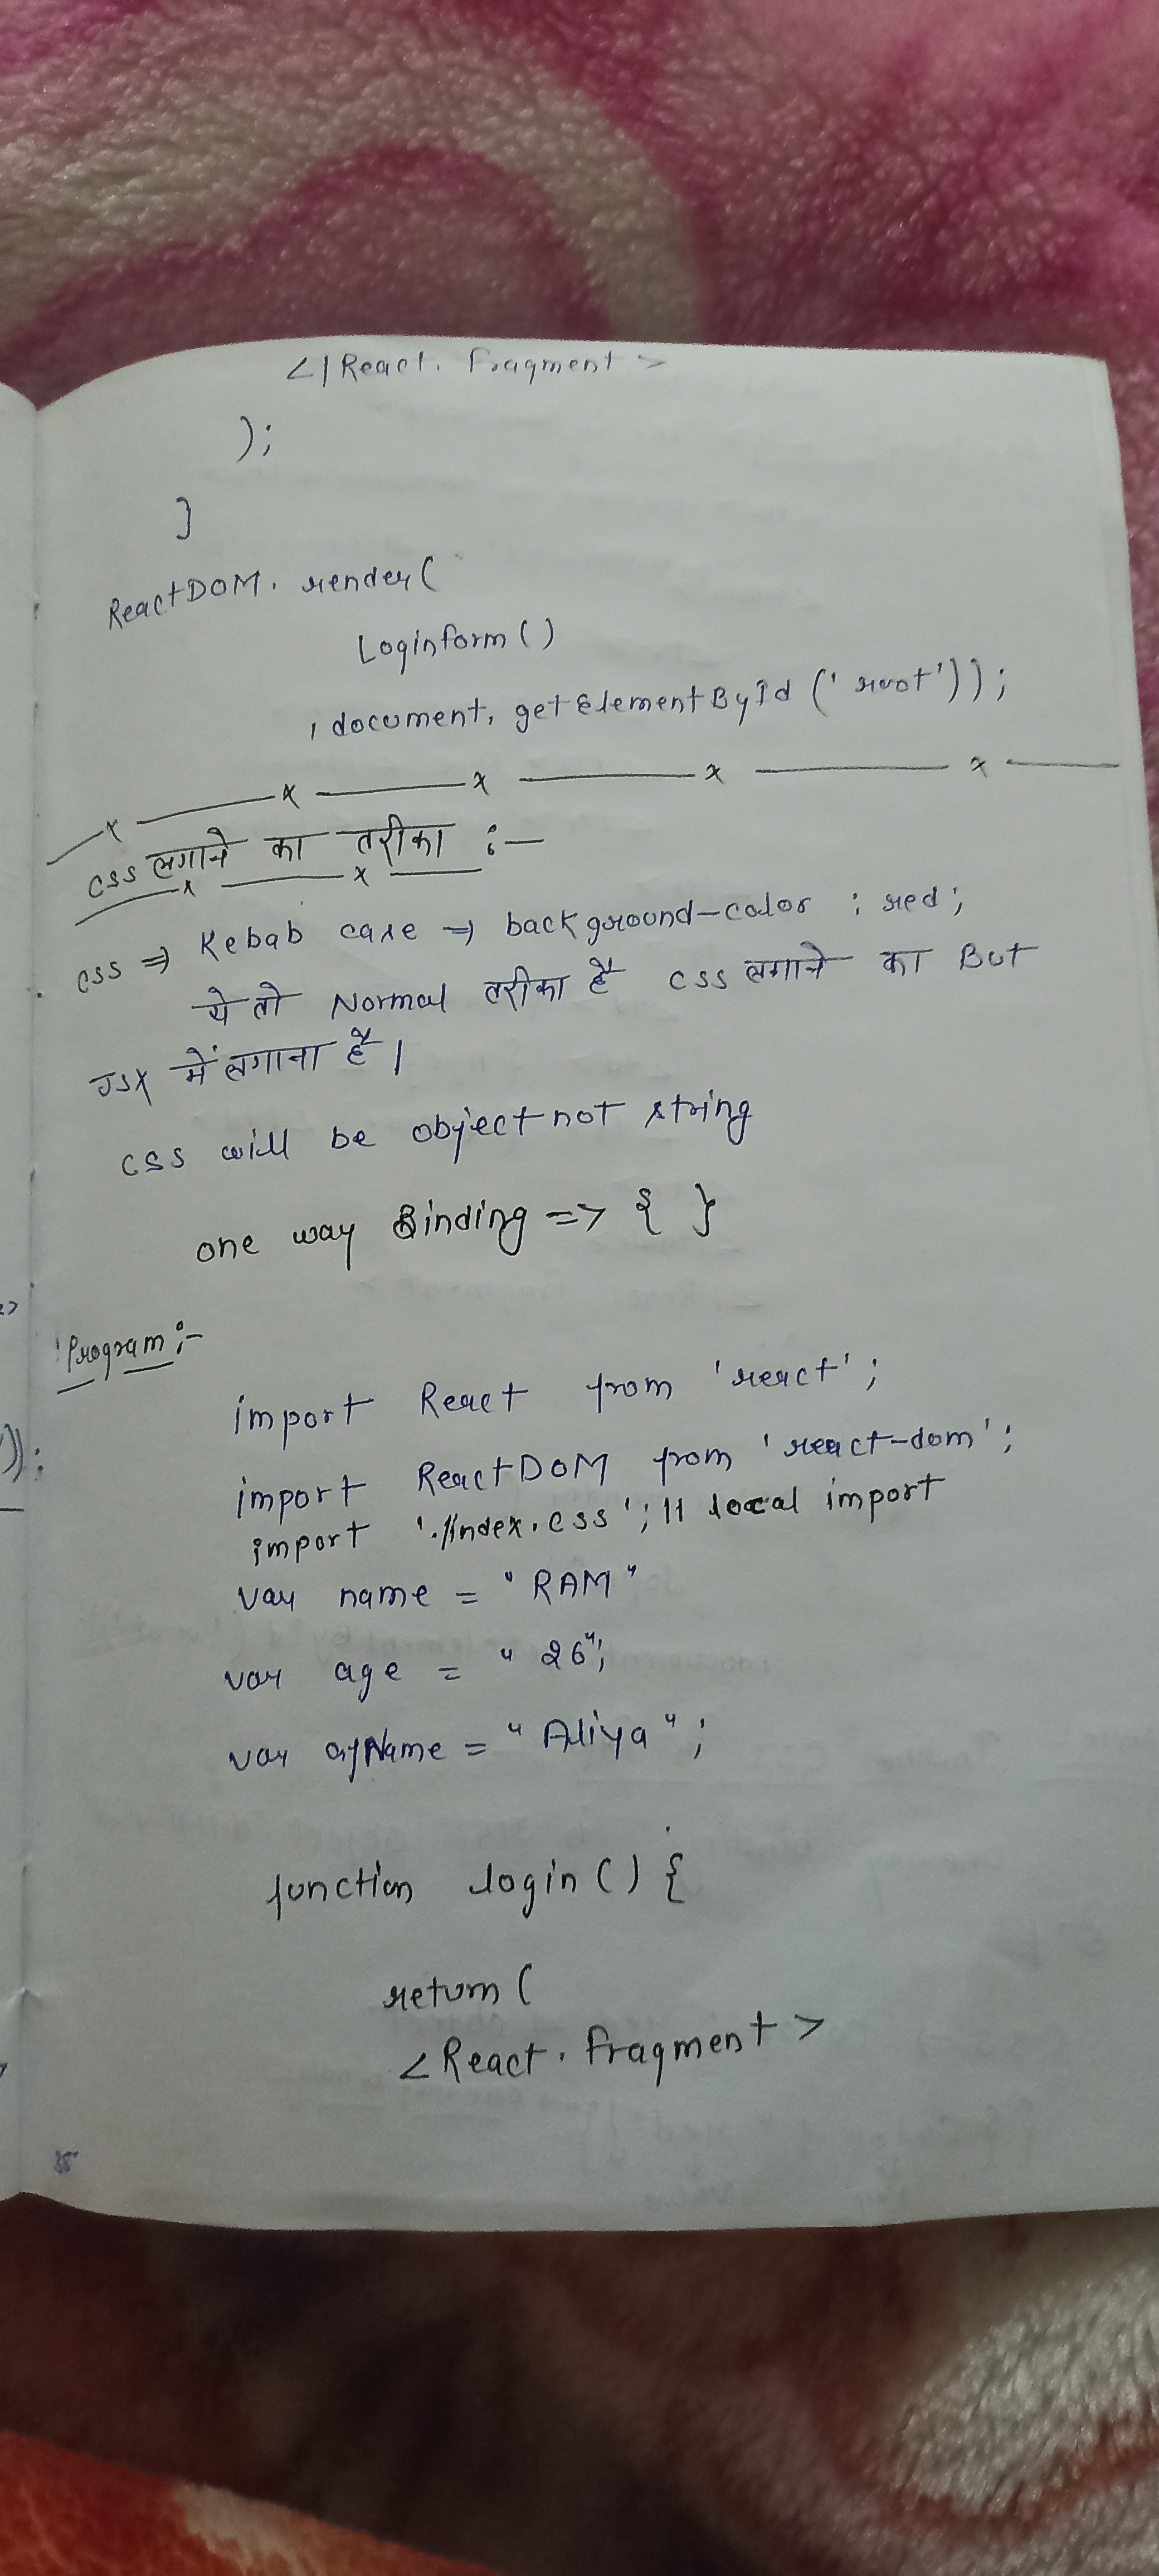 </React.Fragment>
);
}
ReactDOM.render(
Loginform()
,document.getElementById('root'));
x x x x
css लगाने का तरीका :-
x x
css => Kebab case => background-color : red;
ये तो Normal तरीका है css लगाने का But
JSX में लगाना है।
css will be object not string
one way Binding => { }
Program:-
import React from 'react';
import ReactDOM from 'react-dom';
import './index.css'; // local import
var name = "RAM"
var age = "26";
var gfName = "Aliya";
function login() {
return (
<React.Fragment>
)):
35